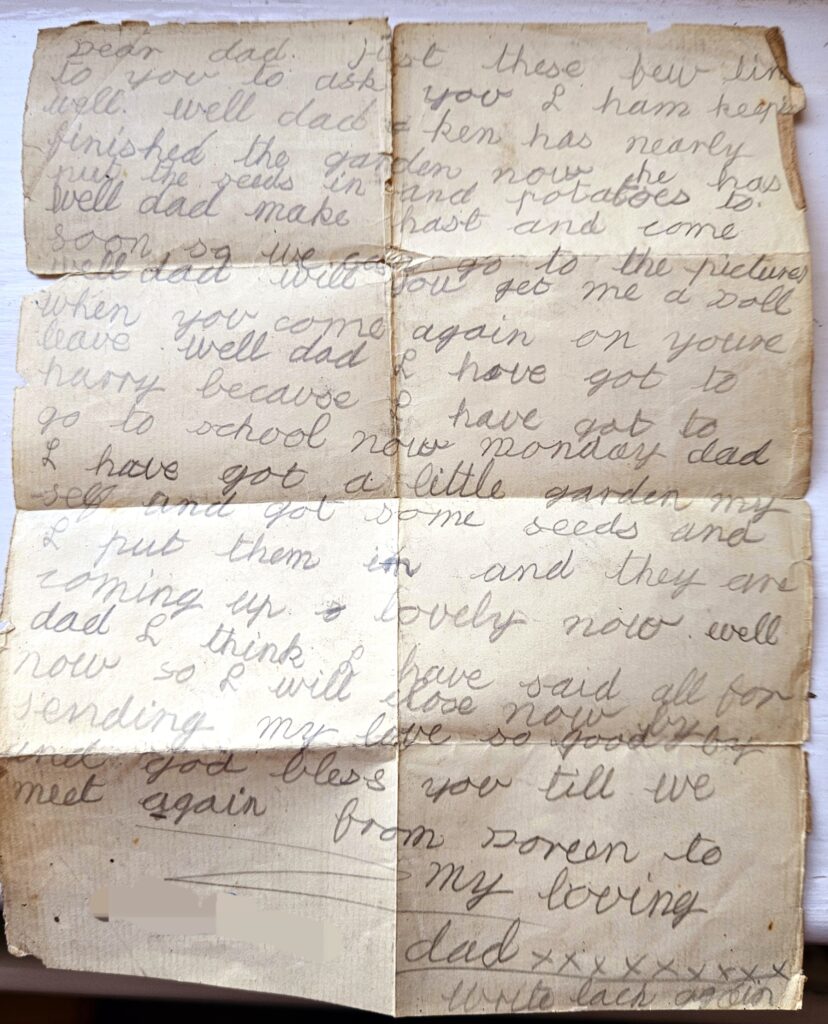 Dear dad. just these few lin
to you to ask you I ham keepi
well. well dad ken has nearly
finished the garden now he has
put the seeds in and potatoes to.
well dad make hast and come
soon so we can go to the pictures
well dad will you get me a Doll
when you come again on youre
leave well dad I have got to
harry because I have got to
go to school now monday dad
I have got a little garden my
self and got some seeds and
I put them in and they are
coming up lovely now. well
dad I think I have said all for
now so I will close now by
sending my love so good by
and god bless you till we
meet again from Doreen to
my loving
dad xxxxxxxxx
write back again